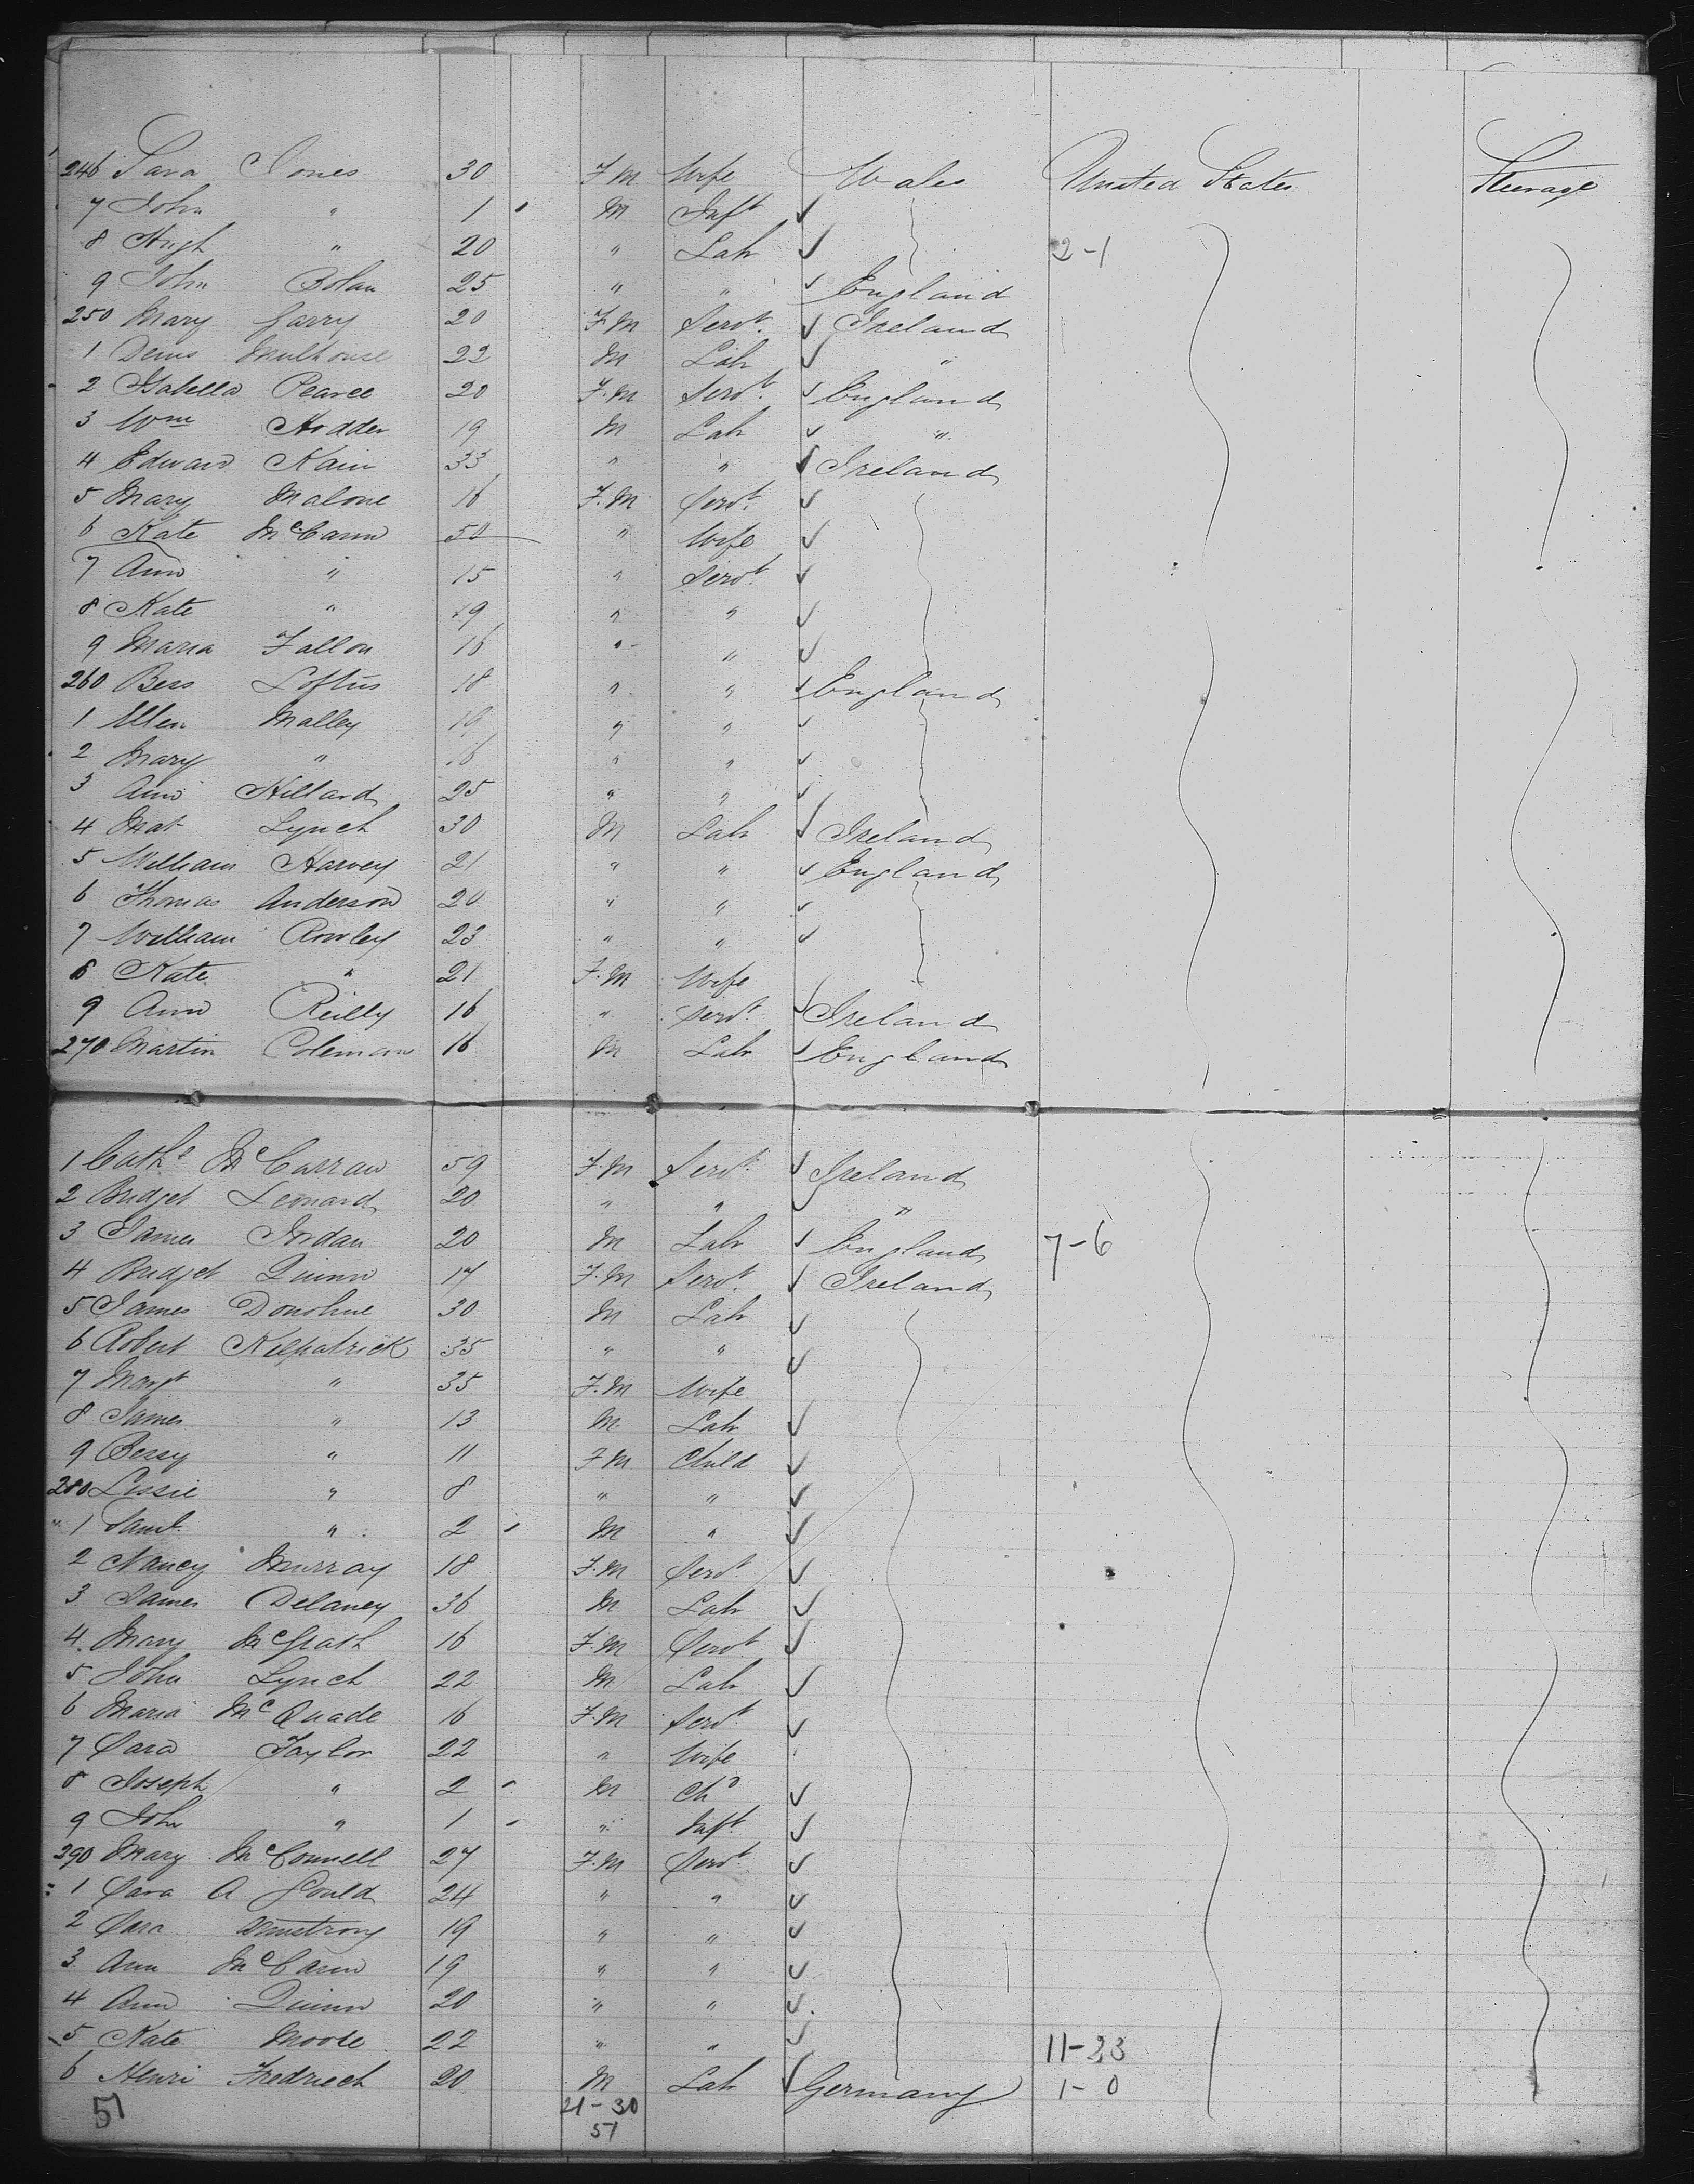 246 Sara Jones 30 F M Wife Wales United States Steerage
7 John " 1 M Inft
8 Hugh " 20 " Lab 2-1
9 John Bolan 25 " " England
250 Mary Garry 20 F.M Servt. Ireland
1 Denis Mulhouse 22 M Lab "
2 Isabella Pearce 20 F.M Servt. England
3 Wm Hodder 19 M Lab "
4 Edward Kain 33 " " Ireland
5 Mary Malone 16 F.M Servt.
6 Kate McCann " Wife
7 Ann " 15 " Servt.
8 Kate " 19 " "
9 Maria Fallon 16 " "
260 Bess Loftus 18 " " England
1 Ellen Malley 19 " "
2 Mary " 16 " "
3 Ann Hillard 25 " "
4 Mat Lynch 30 M Lab Ireland
5 William Harvey 21 " " England
6 Thomas Anderson 20 " "
7 William Rowley 23 " "
8 Kate " 21 F.M Wife
9 Ann Reilly 16 " Servt. Ireland
270 Martin Coleman 16 M Lab England
1 Cathe McCarran 59 F.M Servt. Ireland
2 Bridget Leonard 20 " " "
3 James Jordan 20 M Lab England 7-6
4 Bridget Quinn 17 F.M Servt. Ireland
5 James Donohue 30 M Lab
6 Robert Kilpatrick 35 " "
7 Margt " 35 F.M Wife
8 James " 13 M Lab
9 Bessy " 11 F M Child
280 Lessie " 8 " "
1 Saml. " 2 M "
2 Nancy Murray 18 F.M Servt
3 James Delaney 36 M Lab
4 Mary McGrath 16 F.M Servt
5 John Lynch 22 M Lab
6 Maria McQuade 16 F.M Servt
7 Sara Taylor 22 " Wife
8 Joseph " 2 M Chd
9 John " 1 " Inft.
290 Mary McConnell 27 F.M Servt.
1 Sara A Gould 24 " "
2 Sara Armstrong 19 " "
3 Ann McCann 19 " "
4 Ann Quinn 20 " "
5 Kate Moore 22 " " 11-23
6 Henri Fredriech 20 M Lab Germany 1-0
51 21-30
51